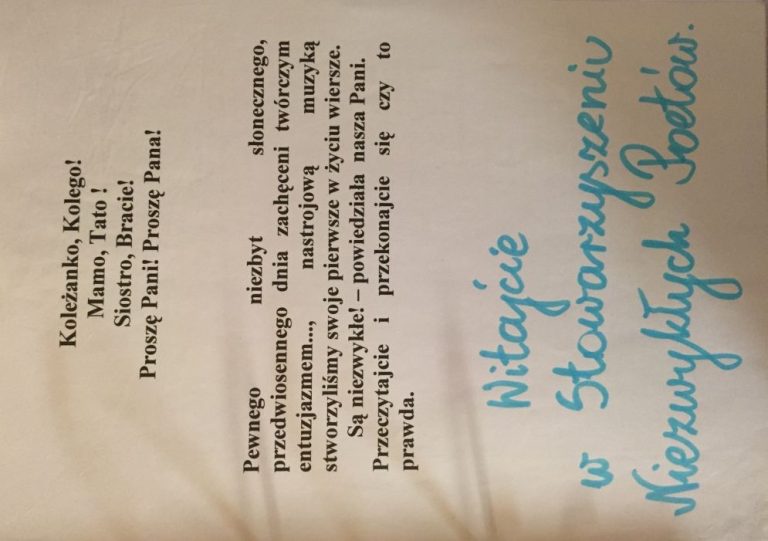 Koleżanko, Kolego!
Mamo, Tato !
Siostro, Bracie!
Proszę Pani! Proszę Pana!
Pewnego niezbyt słonecznego,
przedwiosennego dnia zachęceni twórczym
entuzjazmem..., nastrojową muzyką
stworzyliśmy swoje pierwsze w życiu wiersze.
Są niezwykłe! – powiedziała nasza Pani.
Przeczytajcie i przekonajcie się czy to
prawda.
Witajcie
w Stowarzyszeniu
Niezwykłych Poetów.